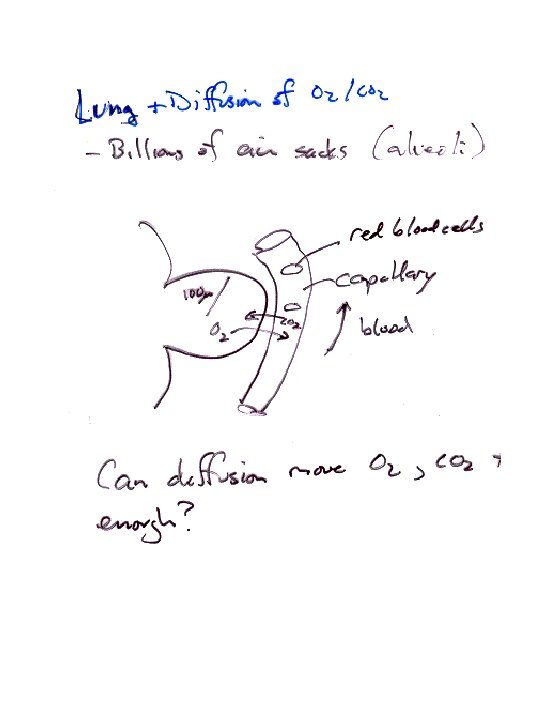 Lung + Diffusion of O2/CO2
- Billions of air sacks (alveoli)
red blood cells
capallary
100μ
O2
CO2
blood
Can diffusion move O2, CO2
enough?